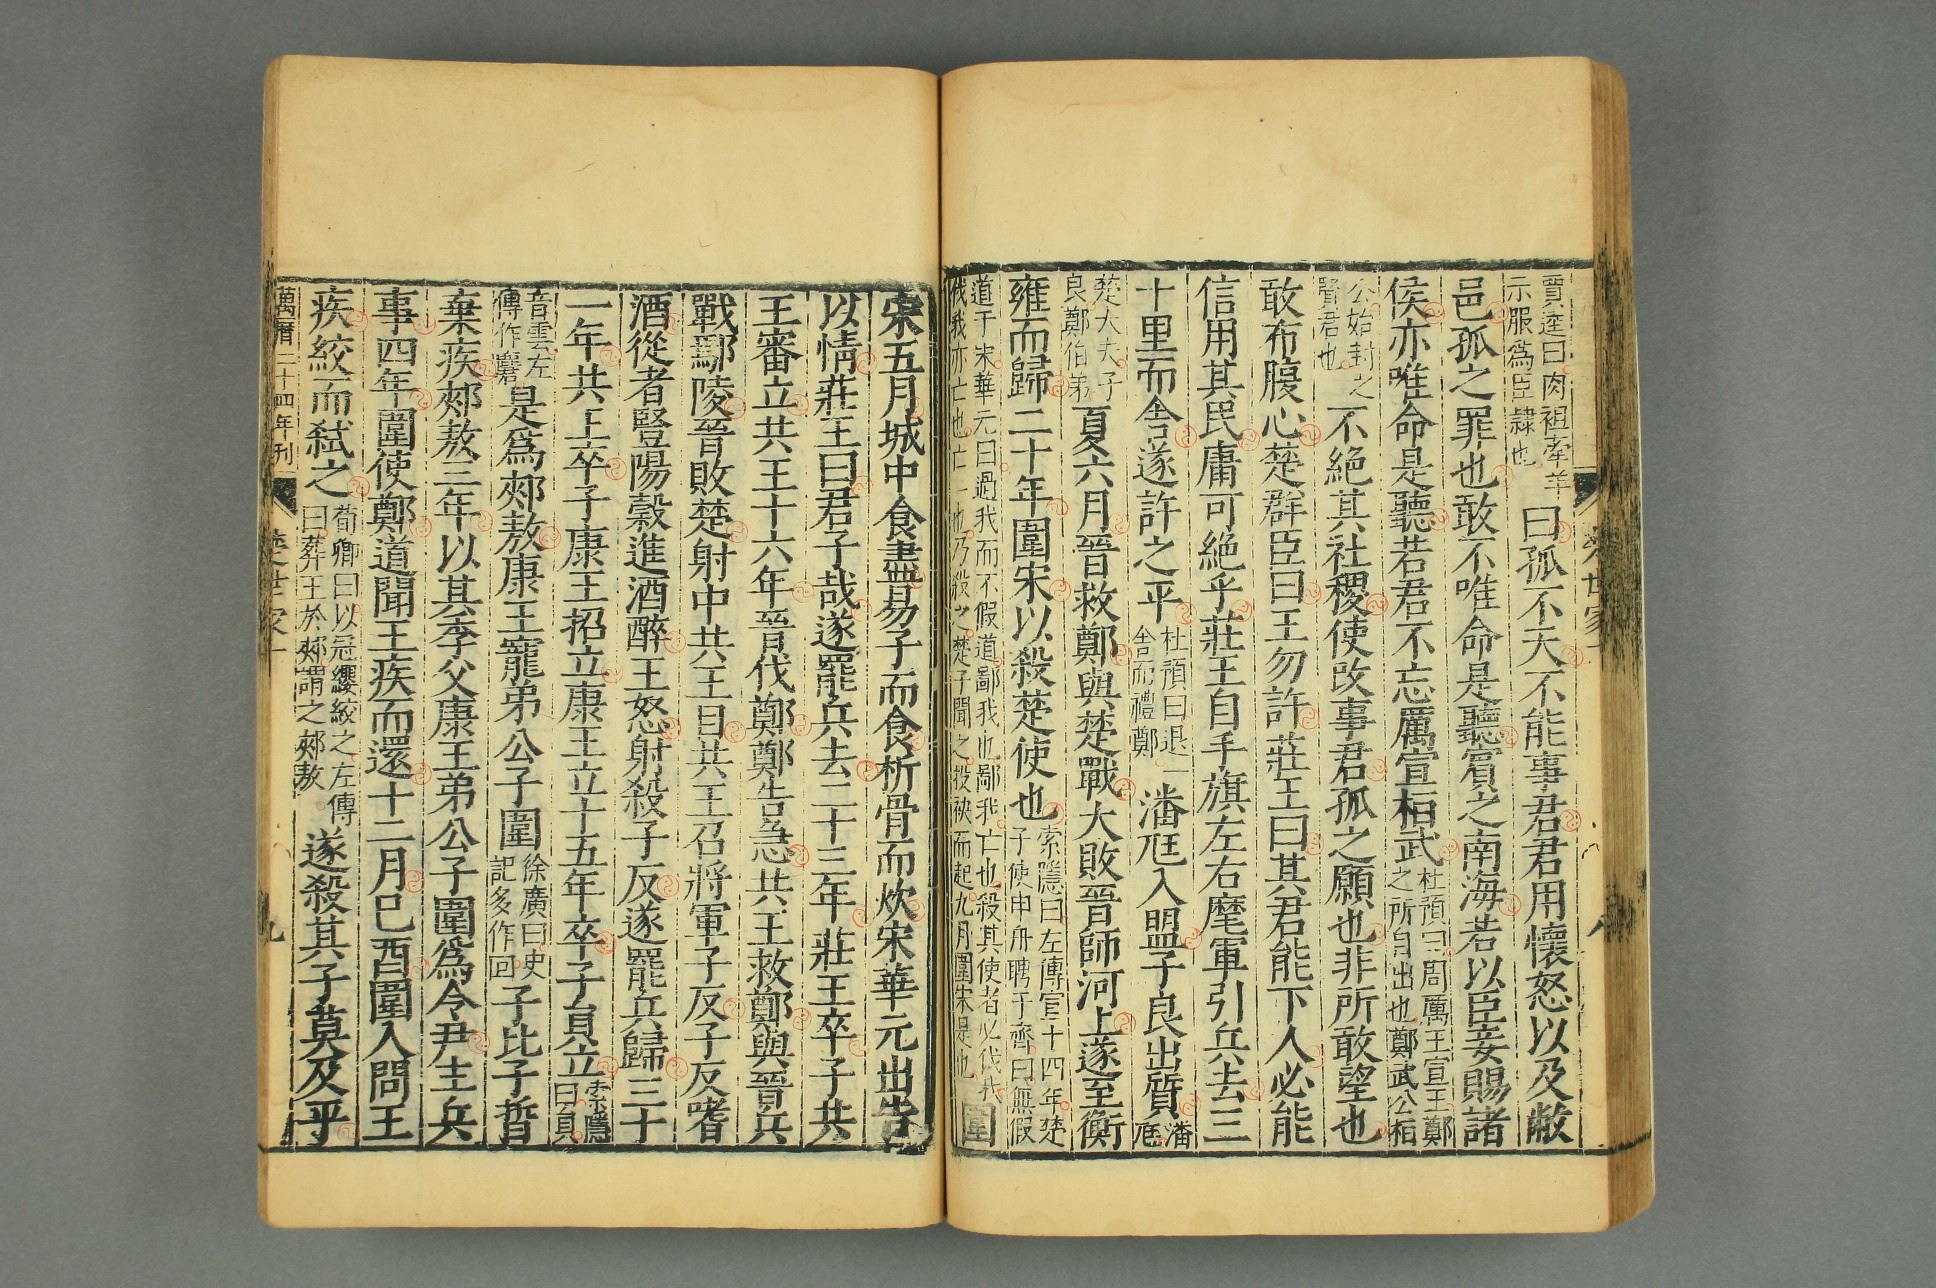 賈逵曰肉袒牽羊示服為臣隷也曰孤不天不能事君君用懷怒以及敝
邑孤之罪也敢不唯命是聽賓之南海若以臣妾賜諸
侯亦唯命是聽若君不忘厲宣桓武杜預曰周厲王宣王鄭之所自出也鄭武公桓
公始封之賢君也不絶其社稷使改事君孤之願也非所敢望也
敢布腹心楚群臣曰王勿許莊王曰其君能下人必能
信用其民庸可絶乎莊王自手旗左右麾軍引兵去三
十里而舍遂許之平杜預曰退一舍而禮鄭潘尫入盟子良出質潘尫
楚大夫子良鄭伯弟夏六月晉救鄭與楚戰大敗晉師河上遂至衡
雍而歸二十年圍宋以殺楚使也索隱曰左傳宣十四年楚子使申舟聘于齊曰無假
道于宋華元曰過我而不假道鄙我也鄙我亡也殺其使者必伐我伐我亦亡也亡一也乃殺之楚子聞之投袂而起九月圍宋是也圍
宋五月城中食盡易子而食析骨而炊宋華元出告
以情莊王曰君子哉遂罷兵去二十三年莊王卒子共
王審立共王十六年晉伐鄭鄭告急共王救鄭與晉兵
戰鄢陵晉敗楚射中共王目共王召將軍子反子反嗜
酒從者豎陽穀進酒醉王怒射殺子反遂罷兵歸三十
一年共王卒子康王招立康王立十五年卒子員立索隱曰員
音雲左傳作麏是為郟敖康王寵弟公子圍徐廣曰史記多作回子比子晳
棄疾郟敖三年以其季父康王弟公子圍為令尹主兵
事四年圍使鄭道聞王疾而還十二月己酉圍入問王
疾絞而弑之荀卿曰以冠纓絞之左傳曰葬王於郟謂之郟敖遂殺其子莫及平
萬曆二十四年刊
楚世家
九